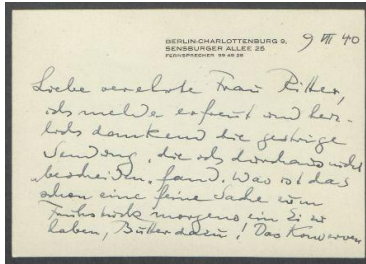 BERLIN-CHARLOTTENBURG 9,
SENSBURGER ALLEE 25
FERNSPRECHER 99 48 28
9 VII 40
Liebe verehrte Frau Ritter,
ich melde erfreut und herz-
lich dankend die gestrige
Sendung, die ich durchaus nicht
bescheiden fand. Was ist das
schon eine feine Sache zum
Frühstück morgens ein Ei zu
haben, Butter dazu! Das Konserven